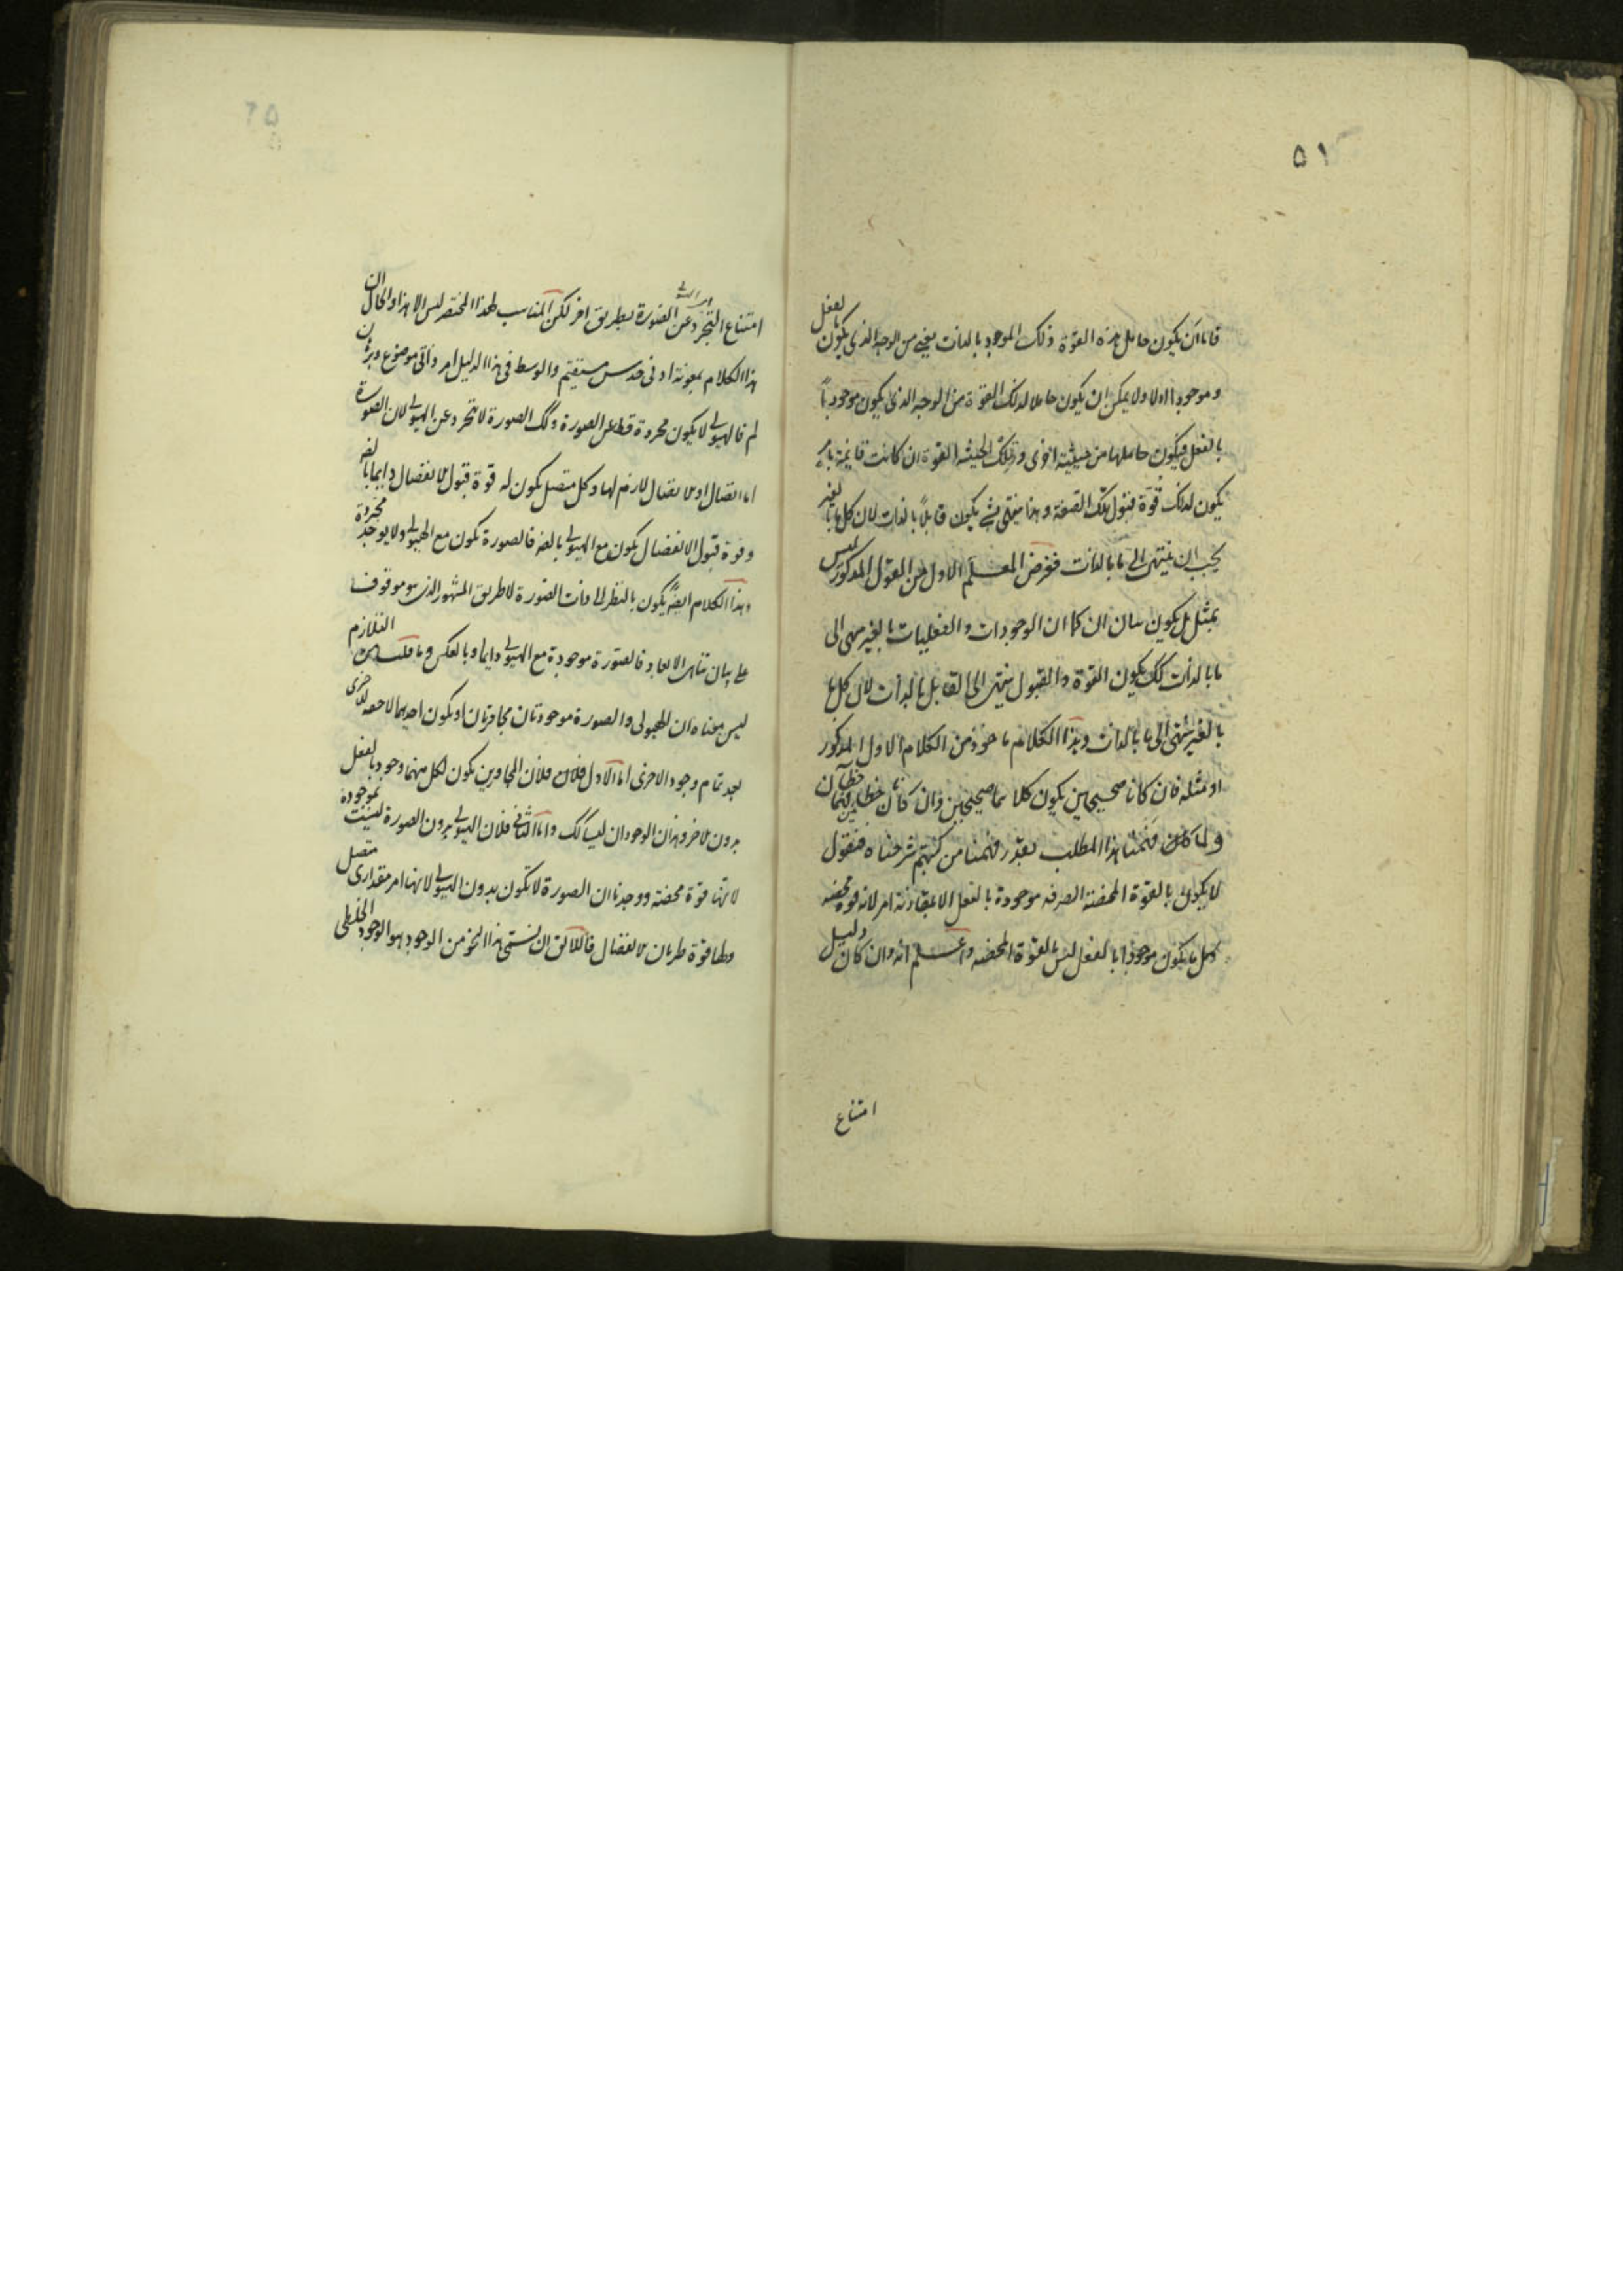 ۵۱
فاما ان يكون حامل هذه القوة ذلك الموجود بالذات يعني من الوجه الذي يكون بالفعل
وموجودا اولا ولا يمكن ان يكون حاملا لذلك القوة من الوجه الذي يكون موجودا
بالفعل فيكون حاملها من حيثية اخرى وتلك الحيثية القوة ان كانت قايمة
يكون لذلك قوة قبول تلك الصفة وهذا ينتهي بشي يكون قابلا بالذات لان كل ما بالغير
يجب ان ينتهى الى ما بالذات فغرض المعلم الاول من القول المذكور ليس
بمثل بل يكون بيان ان كما ان الوجودات والفعليات بالغير ينتهى الى
ما بالذات كك يكون القوة والقبول ينتهى الى القابل بالذات لان كل ما
بالغير ينتهى الى ما بالذات وهذا الكلام ماخوذ من الكلام الاول المذكور
او مثله فان كانا صحيحين يكون كلاهما صحيحين وان كانا خطا يكونان خطا
ولما كان فهمنا هذا المطلب بقدر فهمنا من كتبهم شرحناه فنقول
لا يكون بالقوة المحضة الصرفه موجودة بالفعل الا بمقارنة امر لانه قوة محضه
وكل ما يكون موجودا بالفعل ليس بالقوة المحضه واعلم انه وان كان دليل
امتناع
امتناع التجرد عن الصورة بطريق اخر لكن المناسب لهذا المختصر ليس الا هذا والحال ان
هذا الكلام بمعونة ادنى حدس مستقيم والوسط فى هذا الدليل امر ذاتى موضوع
لم فالهيولى لا يكون مجردة قط عن الصورة وكك الصورة لا تتجرد عن الهيولى لان الصورة
اما اتصال او الاتصال لازم لها وكل متصل يكون له قوة قبول الانفصال دايما بالغير
وقوة قبول الانفصال يكون مع الهيولى بالغير فالصورة تكون مع الهيولى ولا يوجد مجردة
وهذا الكلام ايضا يكون بالنظر الى ذات الصورة لا طريق المشهور الذى هو موقوف
على بيان تناهى الابعاد فالصورة موجودة مع الهيولى دايما وبالعكس وما قلنا من التلازم
ليس معناه ان الهيولى والصورة موجودتان مجاورتان او يكون احديهما لاحقه للاخرى
بعد تمام وجود الاخرى اما الاول فلان المجاورين يكون لكل منهما وجود بالفعل
بدون الاخر وهذان الوجودان ليسا كك واما الثانى فلان الهيولى بدون الصورة ليست بموجودة
لانها قوة محضة ووجدنا ان الصورة لا تكون بدون الهيولى لانها امر مقدارى متصل
ولها قوة طريان الانفصال فاللائق ان نسمى هذا النحو من الوجود هو الوجود الخلطى